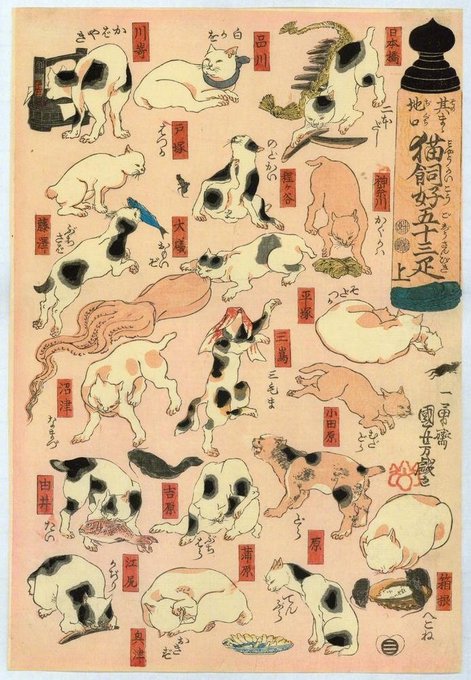 其まゝ
地口
猫飼好五十三疋
上
日本橋
二本だし
品川
白かを
川嵜
かばやき
神奈川
かぐかハ
程ヶ谷
のどかい
戸塚
はつか
藤澤
ぶちさば
大磯
おもいぞ
平塚
そだつか
小田原
むだどら
箱根
へこね
三嶌
三毛ま
沼津
なまづ
原
どら
吉原
ぶちはら
蒲原
てんぷら
由井
たい
奥津
おきず
江尻
かぢり
一勇齋
國芳戯画